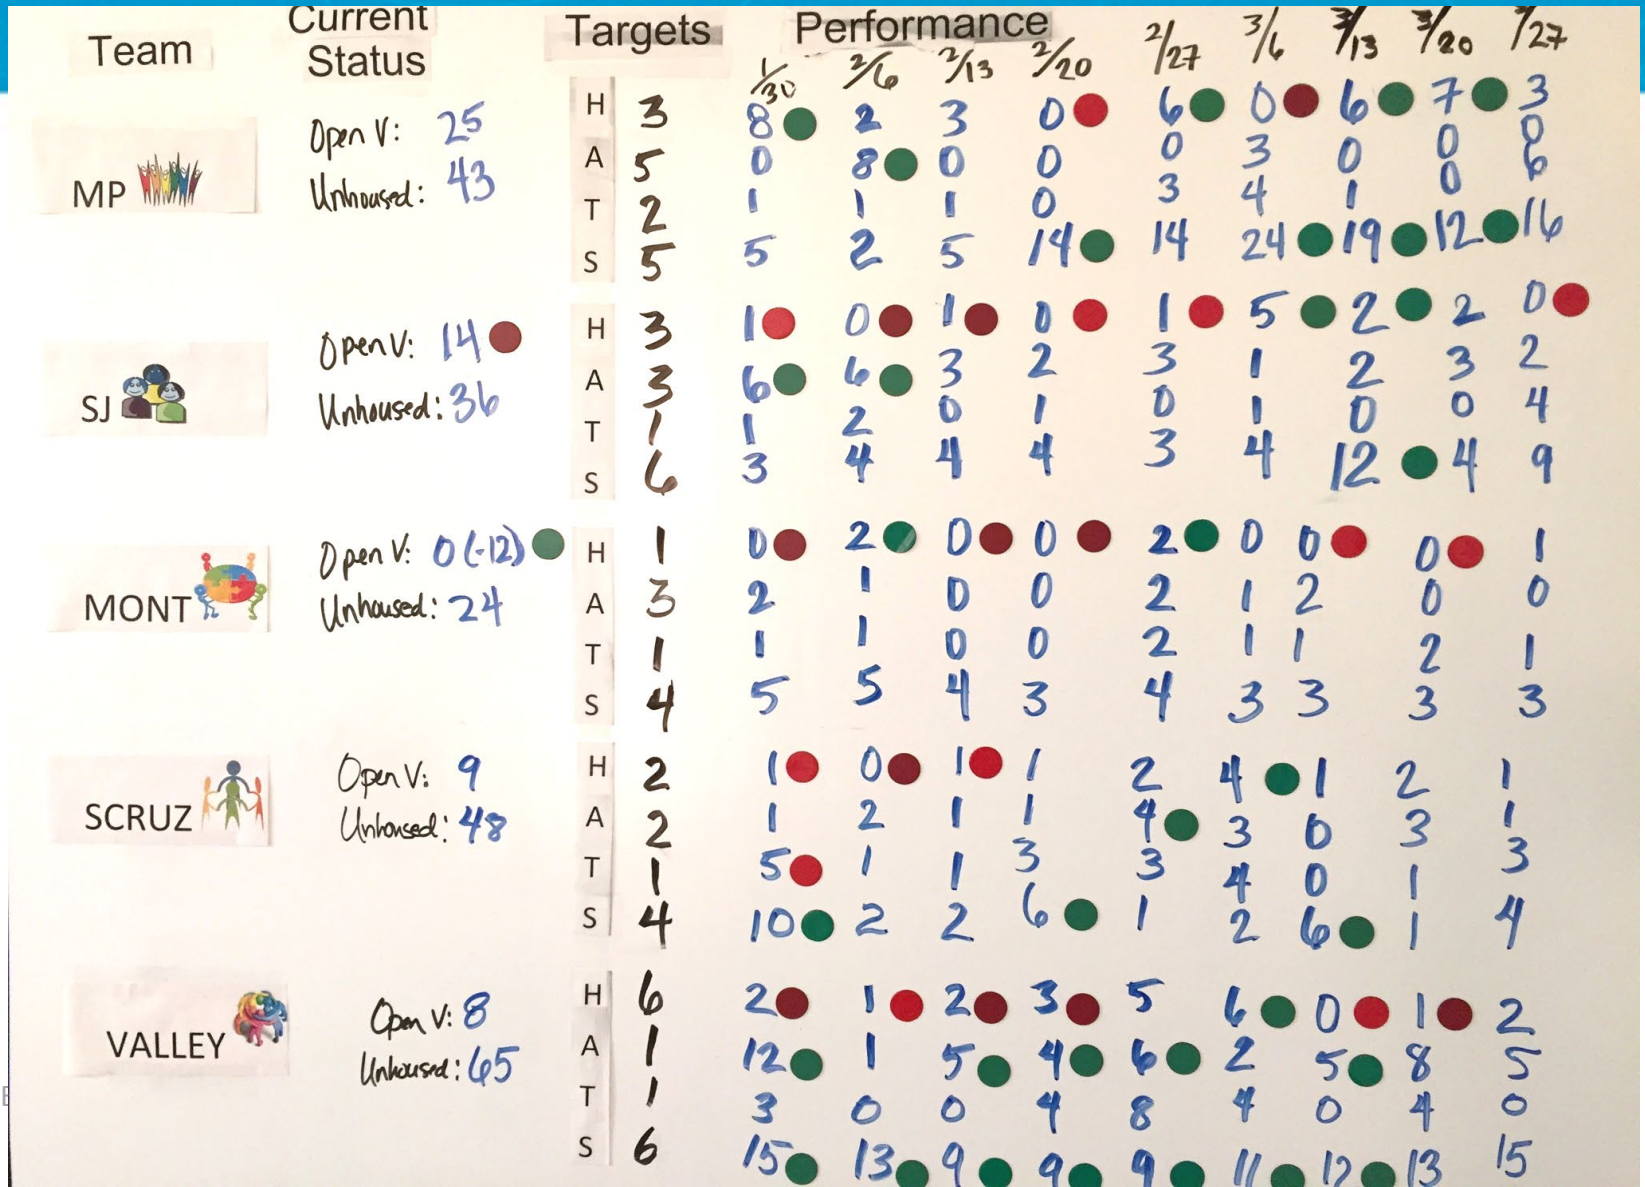 Team Current Status Targets Performance
1/30 2/6 2/13 2/20 2/27 3/6 3/13 3/20 3/27
MP
Open V: 25
Unhoused: 43
H 3 8 2 3 0 6 0 6 7 3
A 5 0 8 0 0 0 3 0 0 0
T 2 1 1 1 0 3 4 1 0 6
S 5 5 2 5 14 14 24 19 12 16
SJ
Open V: 14
Unhoused: 36
H 3 1 0 1 0 1 5 2 2 0
A 3 6 6 3 2 3 1 2 3 2
T 1 1 2 0 1 0 1 0 0 4
S 6 3 4 4 4 3 4 12 4 9
MONT
Open V: 0 (-12)
Unhoused: 24
H 1 0 2 0 0 2 0 0 0 1
A 3 2 1 0 0 2 1 2 0 0
T 1 1 1 0 0 2 1 1 2 1
S 4 5 5 4 3 4 3 3 3 3
SCRUZ
Open V: 9
Unhoused: 48
H 2 1 0 1 1 2 4 1 2 1
A 2 1 2 1 1 4 3 0 3 1
T 1 5 1 1 3 3 4 0 1 3
S 4 10 2 2 6 1 2 6 1 4
VALLEY
Open V: 8
Unhoused: 65
H 6 2 1 2 3 5 6 0 1 2
A 1 12 1 5 4 6 2 5 8 5
T 1 3 0 0 4 8 4 0 4 0
S 6 15 13 9 9 9 11 12 13 15